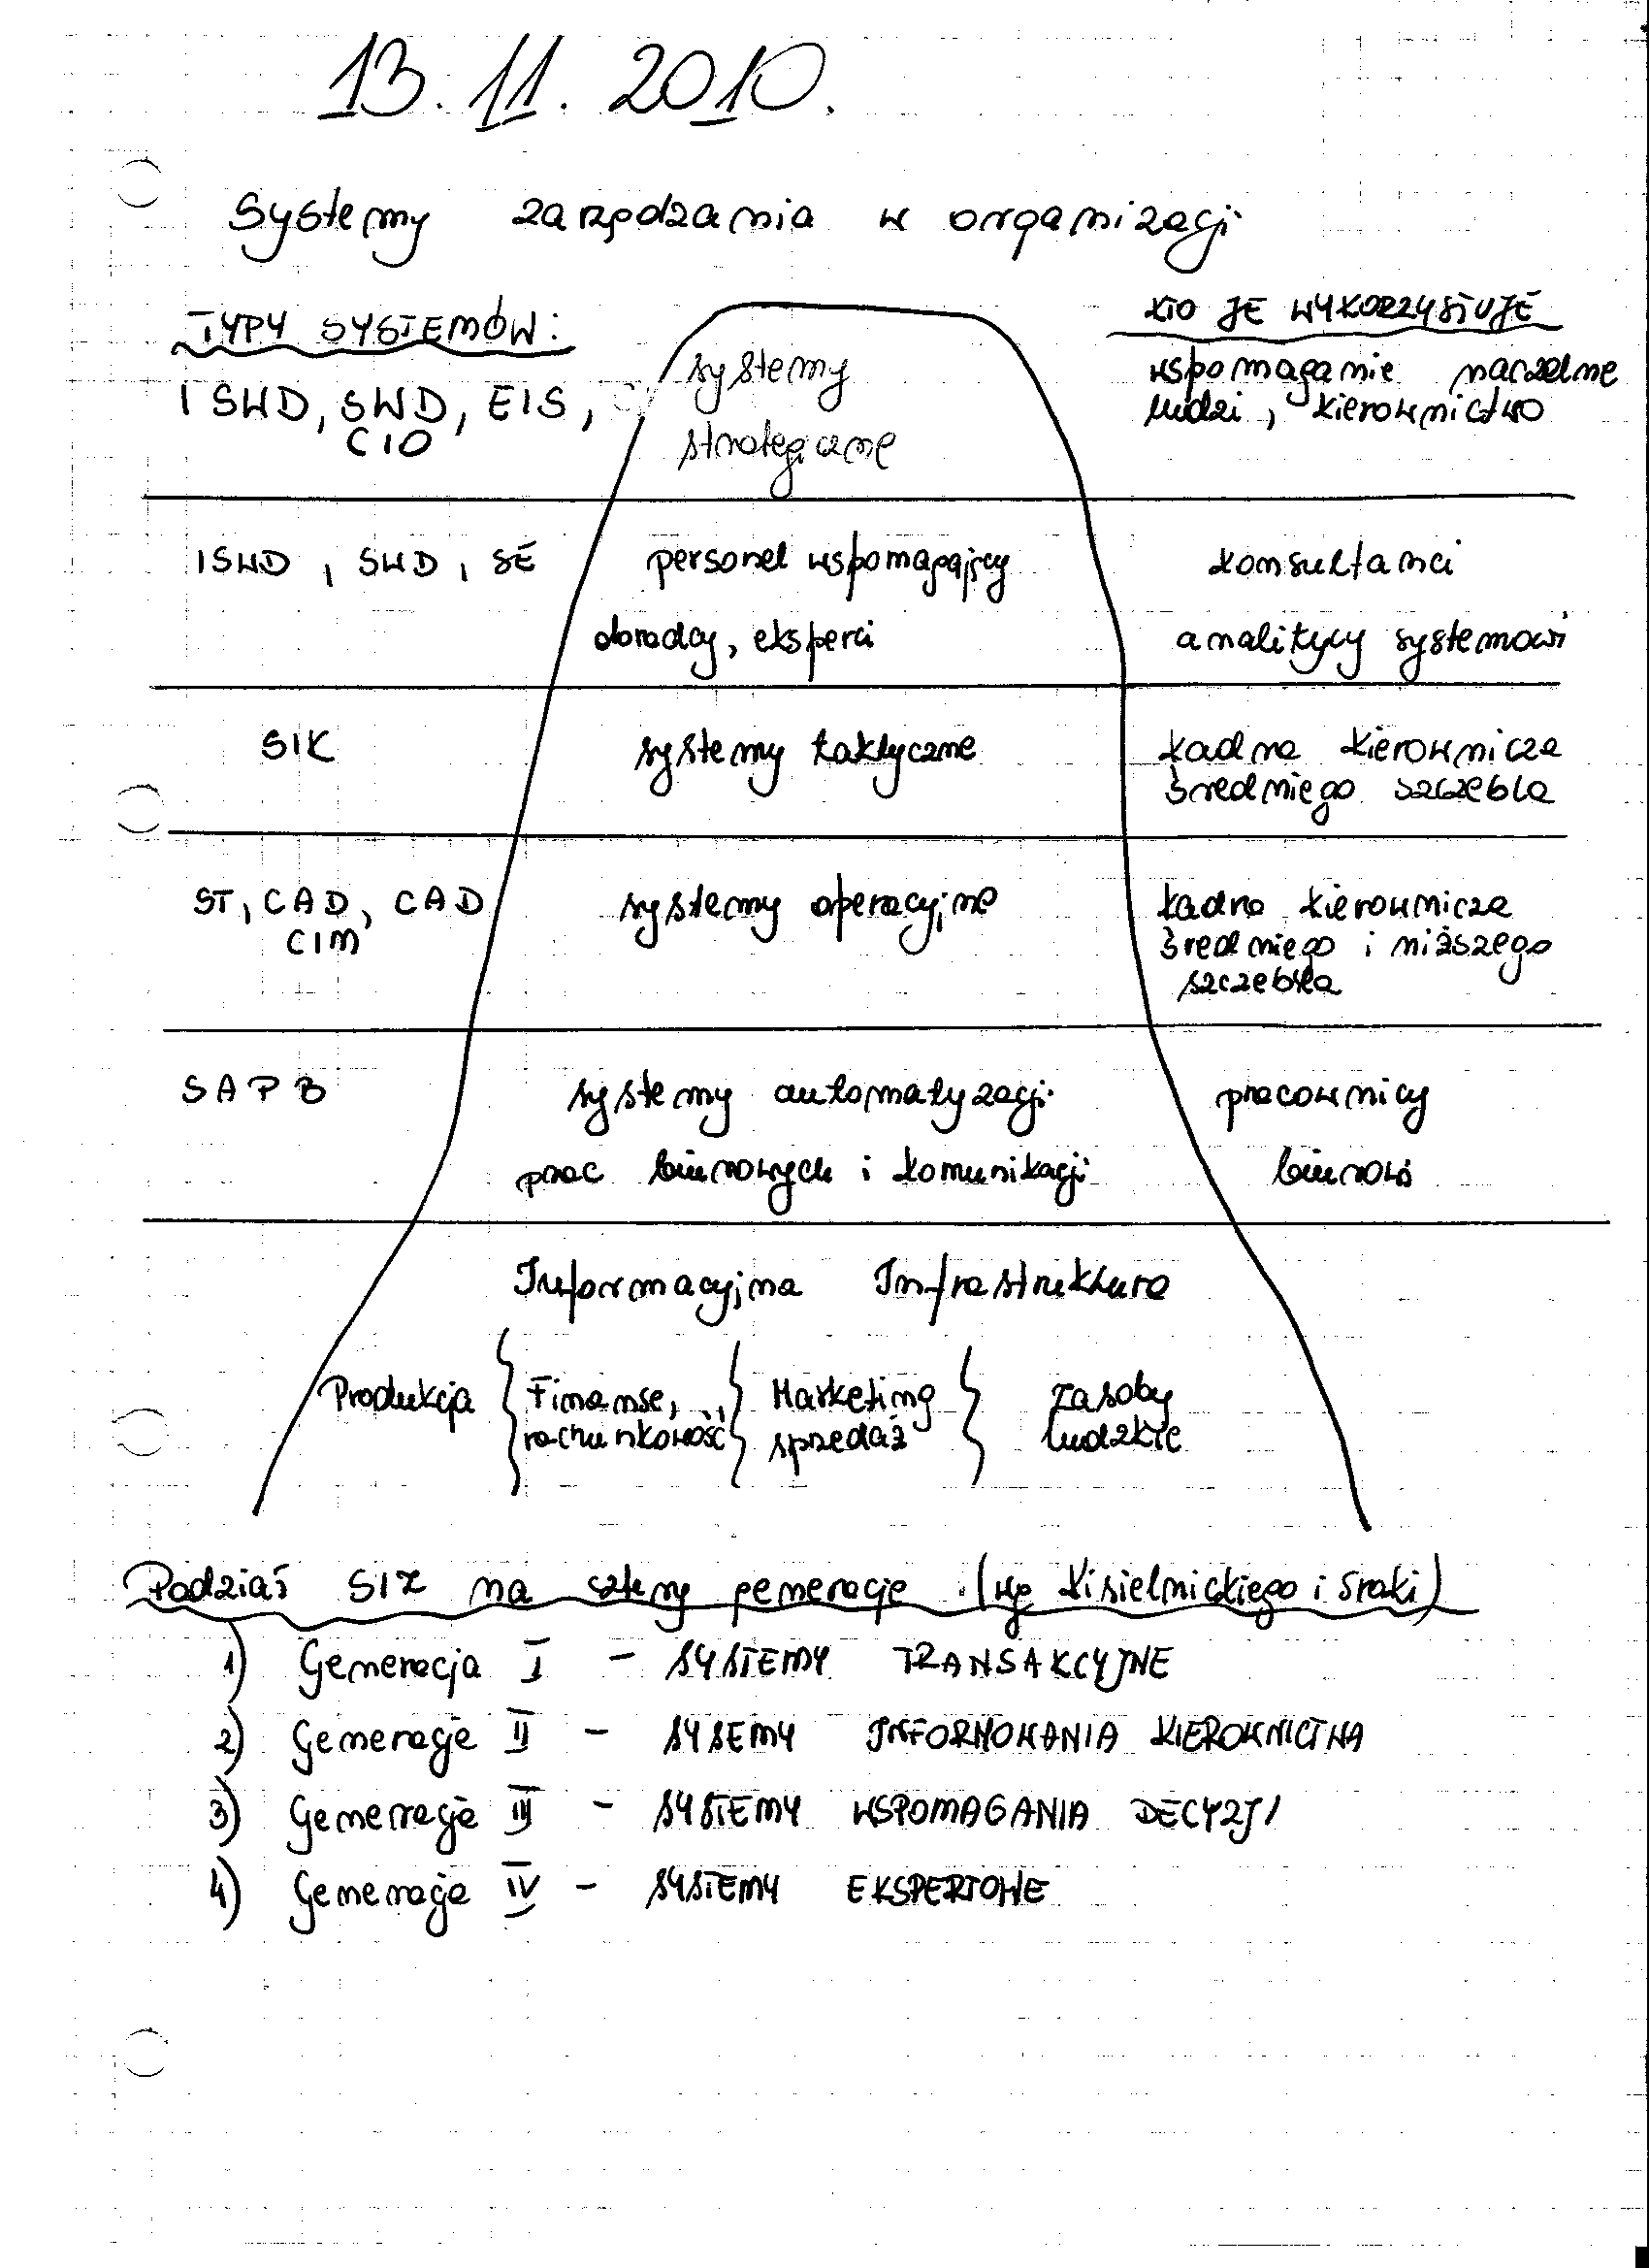 13.11.2010.
Systemy zarządzania w organizacji
TYPY SYSTEMÓW:
KTO JE WYKORZYSTUJE
ISWD, SWD, EIS,
CIO
systemy
strategiczne
wspomaganie naczelne
ludzi, kierownictwo
ISWD, SWD, SE
personel wspomagający
doradcy, eksperci
konsultanci
analitycy systemowi
SIK
systemy taktyczne
kadra kierownicza
średniego szczebla
ST, CAD, CAD
CIM
systemy operacyjne
kadra kierownicza
średniego i niższego
szczebla
SAPB
systemy automatyzacji
prac biurowych i komunikacji
pracownicy
biurowi
Informacyjna Infrastruktura
Produkcja
Finanse,
rachunkowość
Marketing
sprzedaż
zasoby
ludzkie
Podział SIZ na cztery generacje (wg Kisielnickiego i Sroki)
1) Generacja I - SYSTEMY TRANSAKCYJNE
2) Generacje II - SYSEMY INFORMOWANIA KIEROWNICTWA
3) Generacje III - SYSTEMY WSPOMAGANIA DECYZJI
4) Generacje IV - SYSTEMY EKSPERTOWE